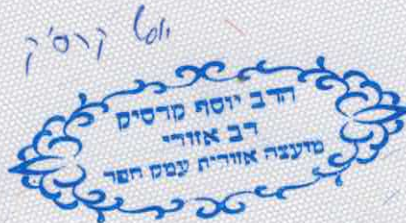 יוסף קרסיק
הרב יוסף קרסיק
רב אזורי
מועצה אזורית עמק חפר